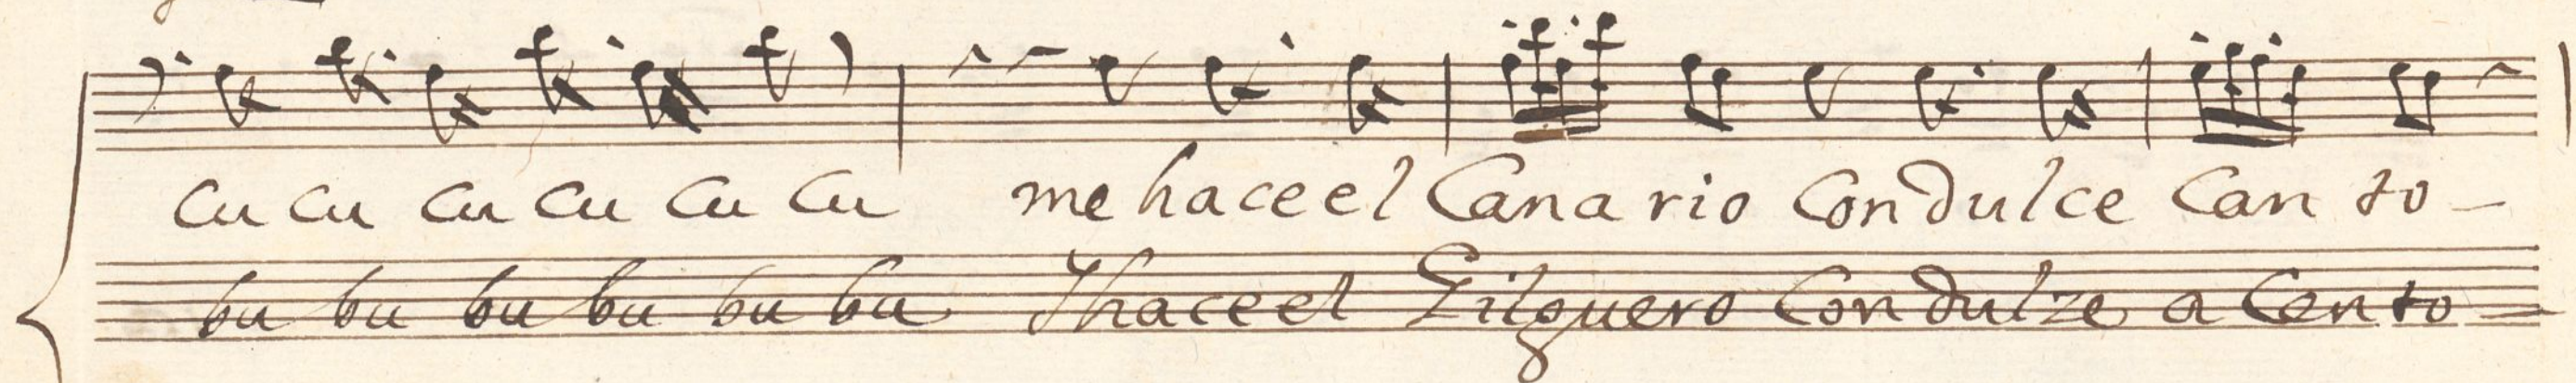 Cu cu cu cu cu cu me hace el Canario Con dulce Canto
bu bu bu bu bu bu Y hace el Gilguero Con dulze a Cento